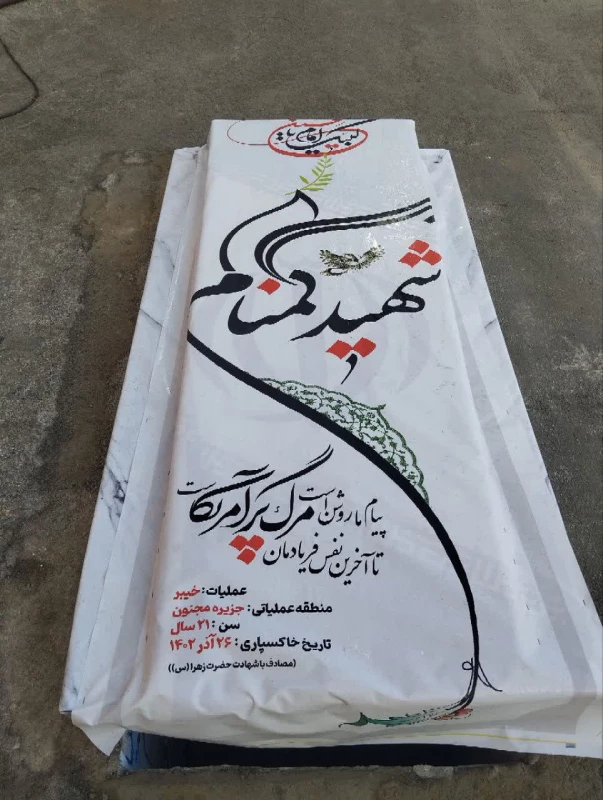 لبیک یا امام
شهید گمنام
پیام ما روشن است مرگ بر آمریکاست
تا آخرین نفس فریادمان
عملیات: خیبر
منطقه عملیاتی: جزیره مجنون
سن: ۲۱ سال
تاریخ خاکسپاری: ۲۶ آذر ۱۴۰۲
(مصادف با شهادت حضرت زهرا (س))